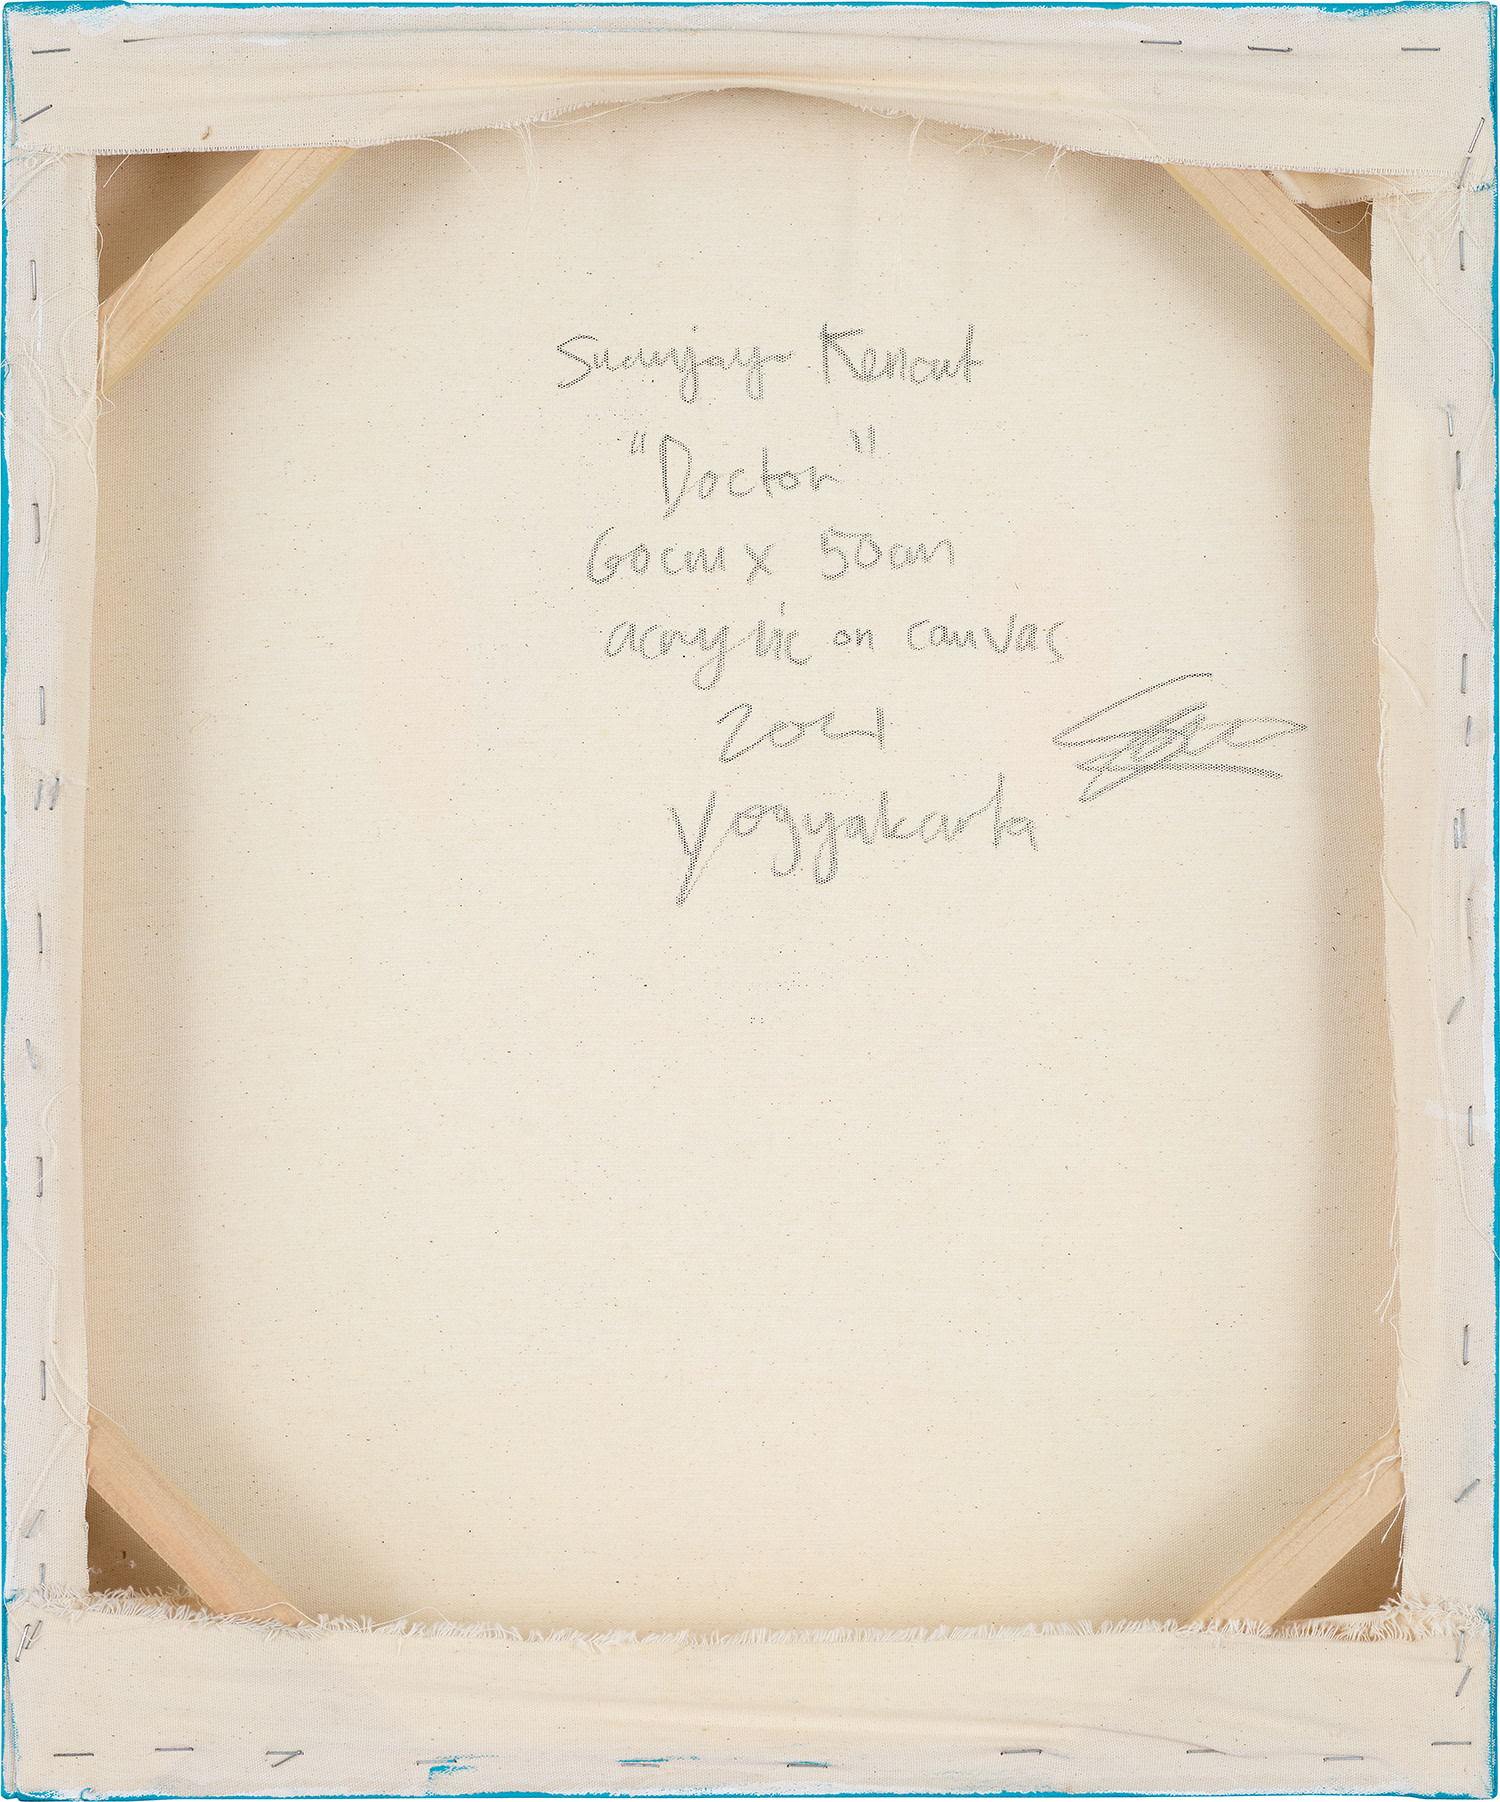 Sunnjaya Kenout
"Doctor"
60cm x 50cm
acrylic on canvas
2021
Yogyakarta